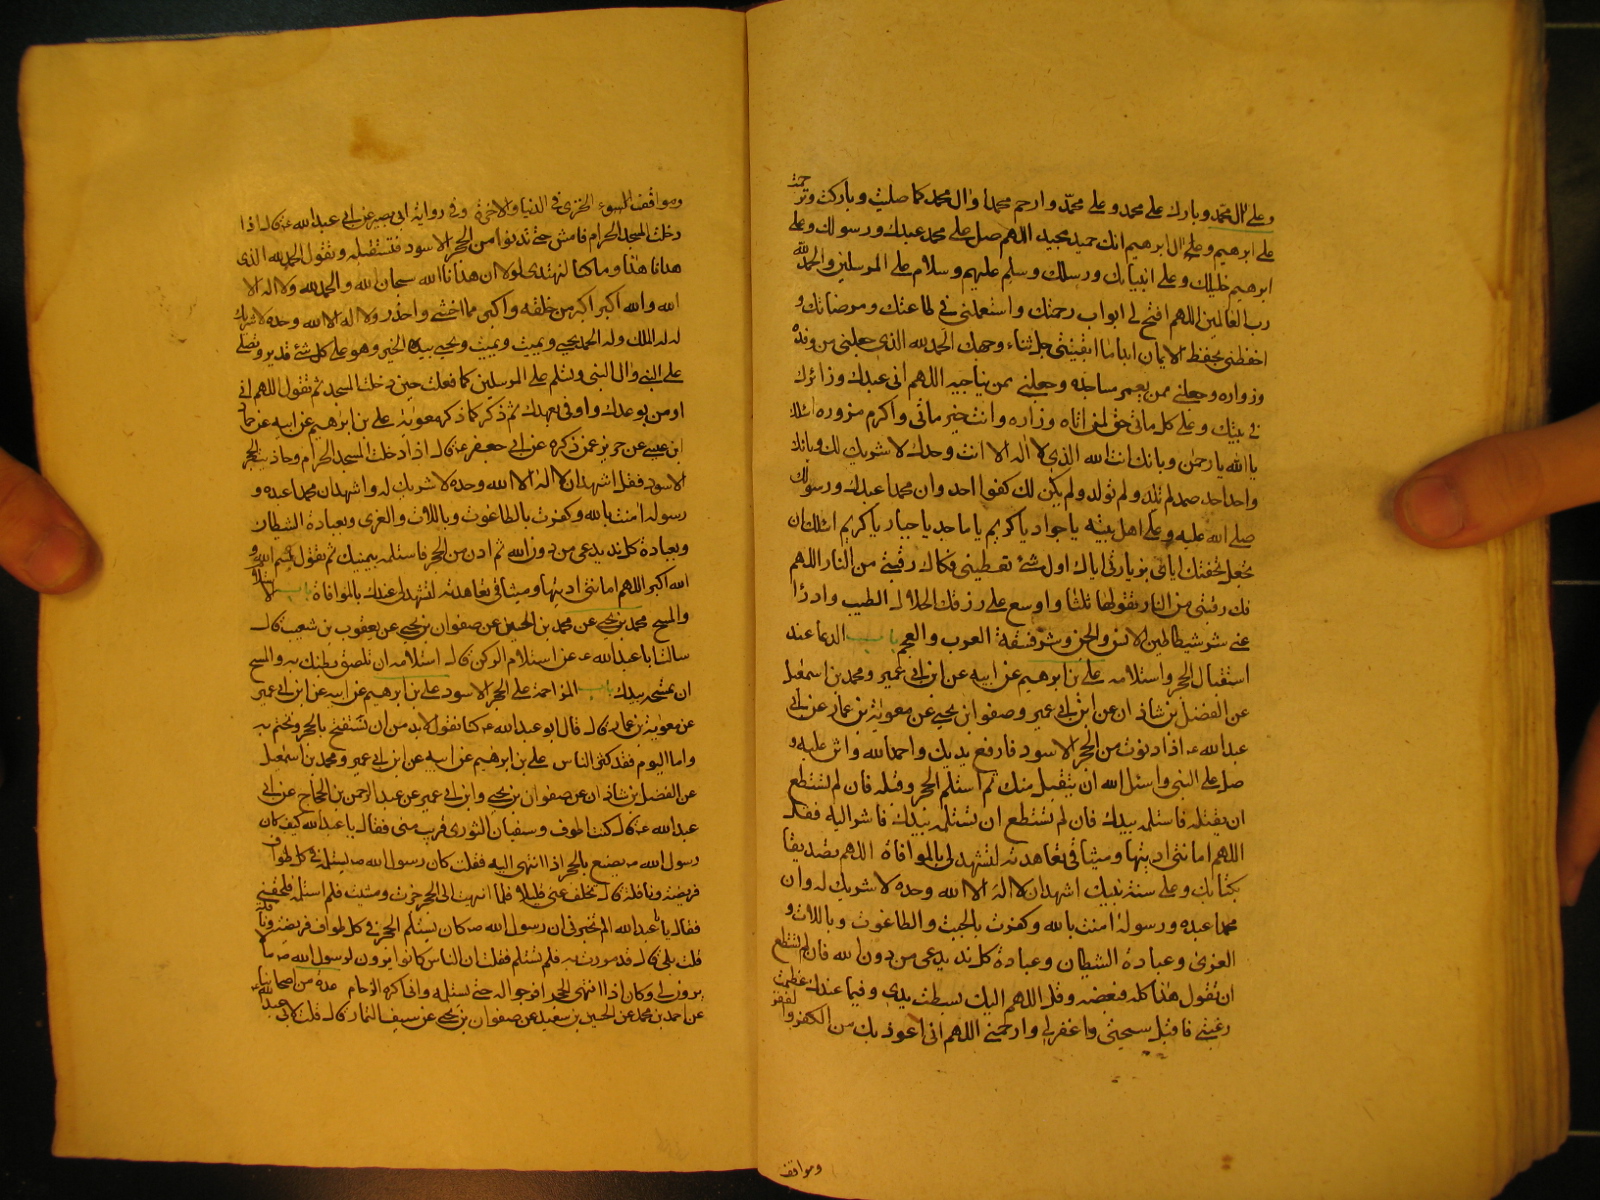 وعلى آل محمد وبارك على محمد وعلى محمد وارحم محمدا وآل محمد كما صليت وباركت وترحمت
على ابرهيم وعلى آل ابرهيم انك حميد مجيد اللهم صل على محمد عبدك ورسولك وعلى
ابرهيم خليلك وعلى انبيائك ورسلك وسلم عليهم وسلام على المرسلين والحمد لله
رب العالمين اللهم افتح لي ابواب رحمتك واستعملني في طاعتك ومرضاتك و
احفظني بحفظ الايمان ابدا ما ابقيتني جل ثناء وجهك الحمد لله الذي جعلني من وفده
وزواره وجعلني ممن يعمر مساجده وجعلني ممن يناجيه اللهم اني عبدك وزائرك
في بيتك وعلى كل ماتي حق لمن اتاه وزاره وانت خير ماتي واكرم مزور اسئلك
يا الله يا رحمن وبانك انت الله الذي لا اله الا انت وحدك لا شريك لك وبانك
واحد احد صمد لم تلد ولم تولد ولم يكن لك كفوا احد وان محمدا عبدك ورسولك
صلى الله عليه وعلى اهل بيته يا جواد يا كريم يا ماجد يا جبار يا كريم اسئلك ان
تجعل تحفتك اياي بزيارتي اياك اول شئ تعطيني فكاك رقبتي من النار اللهم
فك رقبتي من النار تقولها ثلثا واوسع على رزقك الحلال الطيب وادرأ
عني شر شياطين الانس والجن وشر فسقة العرب والعجم باب الدعا عند
استقبال الحجر واستلامه على بن ابرهيم عن ابيه عن ابن ابي عمير ومحمد بن اسمعيل
عن الفضل بن شاذان عن ابن ابي عمير وصفوان بن يحيى عن معوية بن عمار عن ابي
عبد الله ع اذا دنوت من الحجر الاسود فارفع يديك واحمد الله واثن عليه و
صل على النبي واسئل الله ان يتقبل منك ثم استلم الحجر وقبله فان لم تستطع
ان تقبله فاستلمه بيدك فان لم تستطع ان تستلمه بيدك فاشر اليه فقل
اللهم امانتي اديتها وميثاقي تعاهدته لتشهد لي بالموافاة اللهم تصديقا
بكتابك وعلى سنة نبيك اشهد ان لا اله الا الله وحده لا شريك له وان
محمدا عبده ورسوله امنت بالله وكفرت بالجبت والطاغوت وباللات و
العزى وعبادة الشيطان وعبادة كل ند يدعى من دون الله فان لم تستطع
ان تقول هذا كله فبعضه وقل اللهم اليك بسطت يدي وفيما عندك عظمت
رغبتي فاقبل سبحتي واغفر لي وارحمني اللهم اني اعوذ بك من الكفر والفقر
ومواقف
ومواقف الخزي في الدنيا والاخرة وفي رواية ابي بصير عن ابي عبد الله ع قال اذا
دخلت المسجد الحرام فامش حتى تدنوا من الحجر الاسود فتستقبله وتقول الحمد لله الذي
هدانا لهذا وما كنا لنهتدي لولا ان هدانا الله سبحان الله والحمد لله ولا اله الا
الله والله اكبر اكبر من خلقه واكبر مما اخشى واحذر ولا اله الا الله وحده لا شريك
له له الملك وله الحمد يحيي ويميت ويميت ويحيي بيده الخير وهو على كل شئ قدير وتصلى
على النبي وآل النبي وتسلم على المرسلين كما فعلت حين دخلت المسجد ثم تقول اللهم اني
اومن بوعدك واوفي بعهدك ثم ذكر كما ذكر معوية على بن ابرهيم عن ابيه عن حماد
ابن عيسى عن حريز عمن ذكره عن ابي جعفر ع قال اذا دخلت المسجد الحرام وحاذيت الحجر
الاسود فقل اشهد ان لا اله الا الله وحده لا شريك له واشهد ان محمدا عبده و
رسوله امنت بالله وكفرت بالطاغوت وباللات والعزى وبعبادة الشيطان
وبعبادة كل ند يدعى من دون الله ثم ادن من الحجر فاستلمه بيمينك ثم تقول بسم الله و
الله اكبر اللهم امانتي اديتها وميثاقي تعاهدته لتشهد لي عندك بالموافاة باب الاستلام
والمسح محمد بن يحيى عن محمد بن الحسين عن صفوان بن يحيى عن يعقوب بن شعيب قال
سالت ابا عبد الله ع عن استلام الركن قال استلامه ان تلصق بطنك به والمسح
ان تمسحه بيدك باب المزاحمة على الحجر الاسود على بن ابرهيم عن ابيه عن ابن ابي عمير
عن معوية بن عمار قال قال ابو عبد الله ع كنا نقول لا بد من ان تستفتح بالحجر وتختم به
واما اليوم فقد كثر الناس على بن ابرهيم عن ابيه عن ابن ابي عمير ومحمد بن اسمعيل
عن الفضل بن شاذان عن صفوان بن يحيى وابن ابي عمير عن عبد الرحمن بن الحجاج عن ابي
عبد الله ع قال كنت اطوف وسفيان الثوري قريب مني فقال يا عبد الله كيف كان
رسول الله ص يصنع بالحجر اذا انتهى اليه فقلت كان رسول الله ص يستلمه في كل طواف
فريضة ونافلة قال فتخلف عني قليلا فلما انتهيت الى الحجر جزت ومشيت فلم استلمه فلحقني
فقال يا ابا عبد الله الم تخبرني ان رسول الله ص كان يستلم الحجر في كل طواف فريضة ونافلة
قلت بلى قال فقد مررت به فلم تستلم فقلت ان الناس كانوا يرون لرسول الله ص ما لا
يرون لي وكان اذا انتهى الى الحجر افرجوا له حتى يستلمه واني اكره الزحام عدة من اصحابنا
عن احمد بن محمد عن الحسين بن سعيد عن صفوان بن يحيى عن سيف التمار قال قلت لابي عبد الله ع